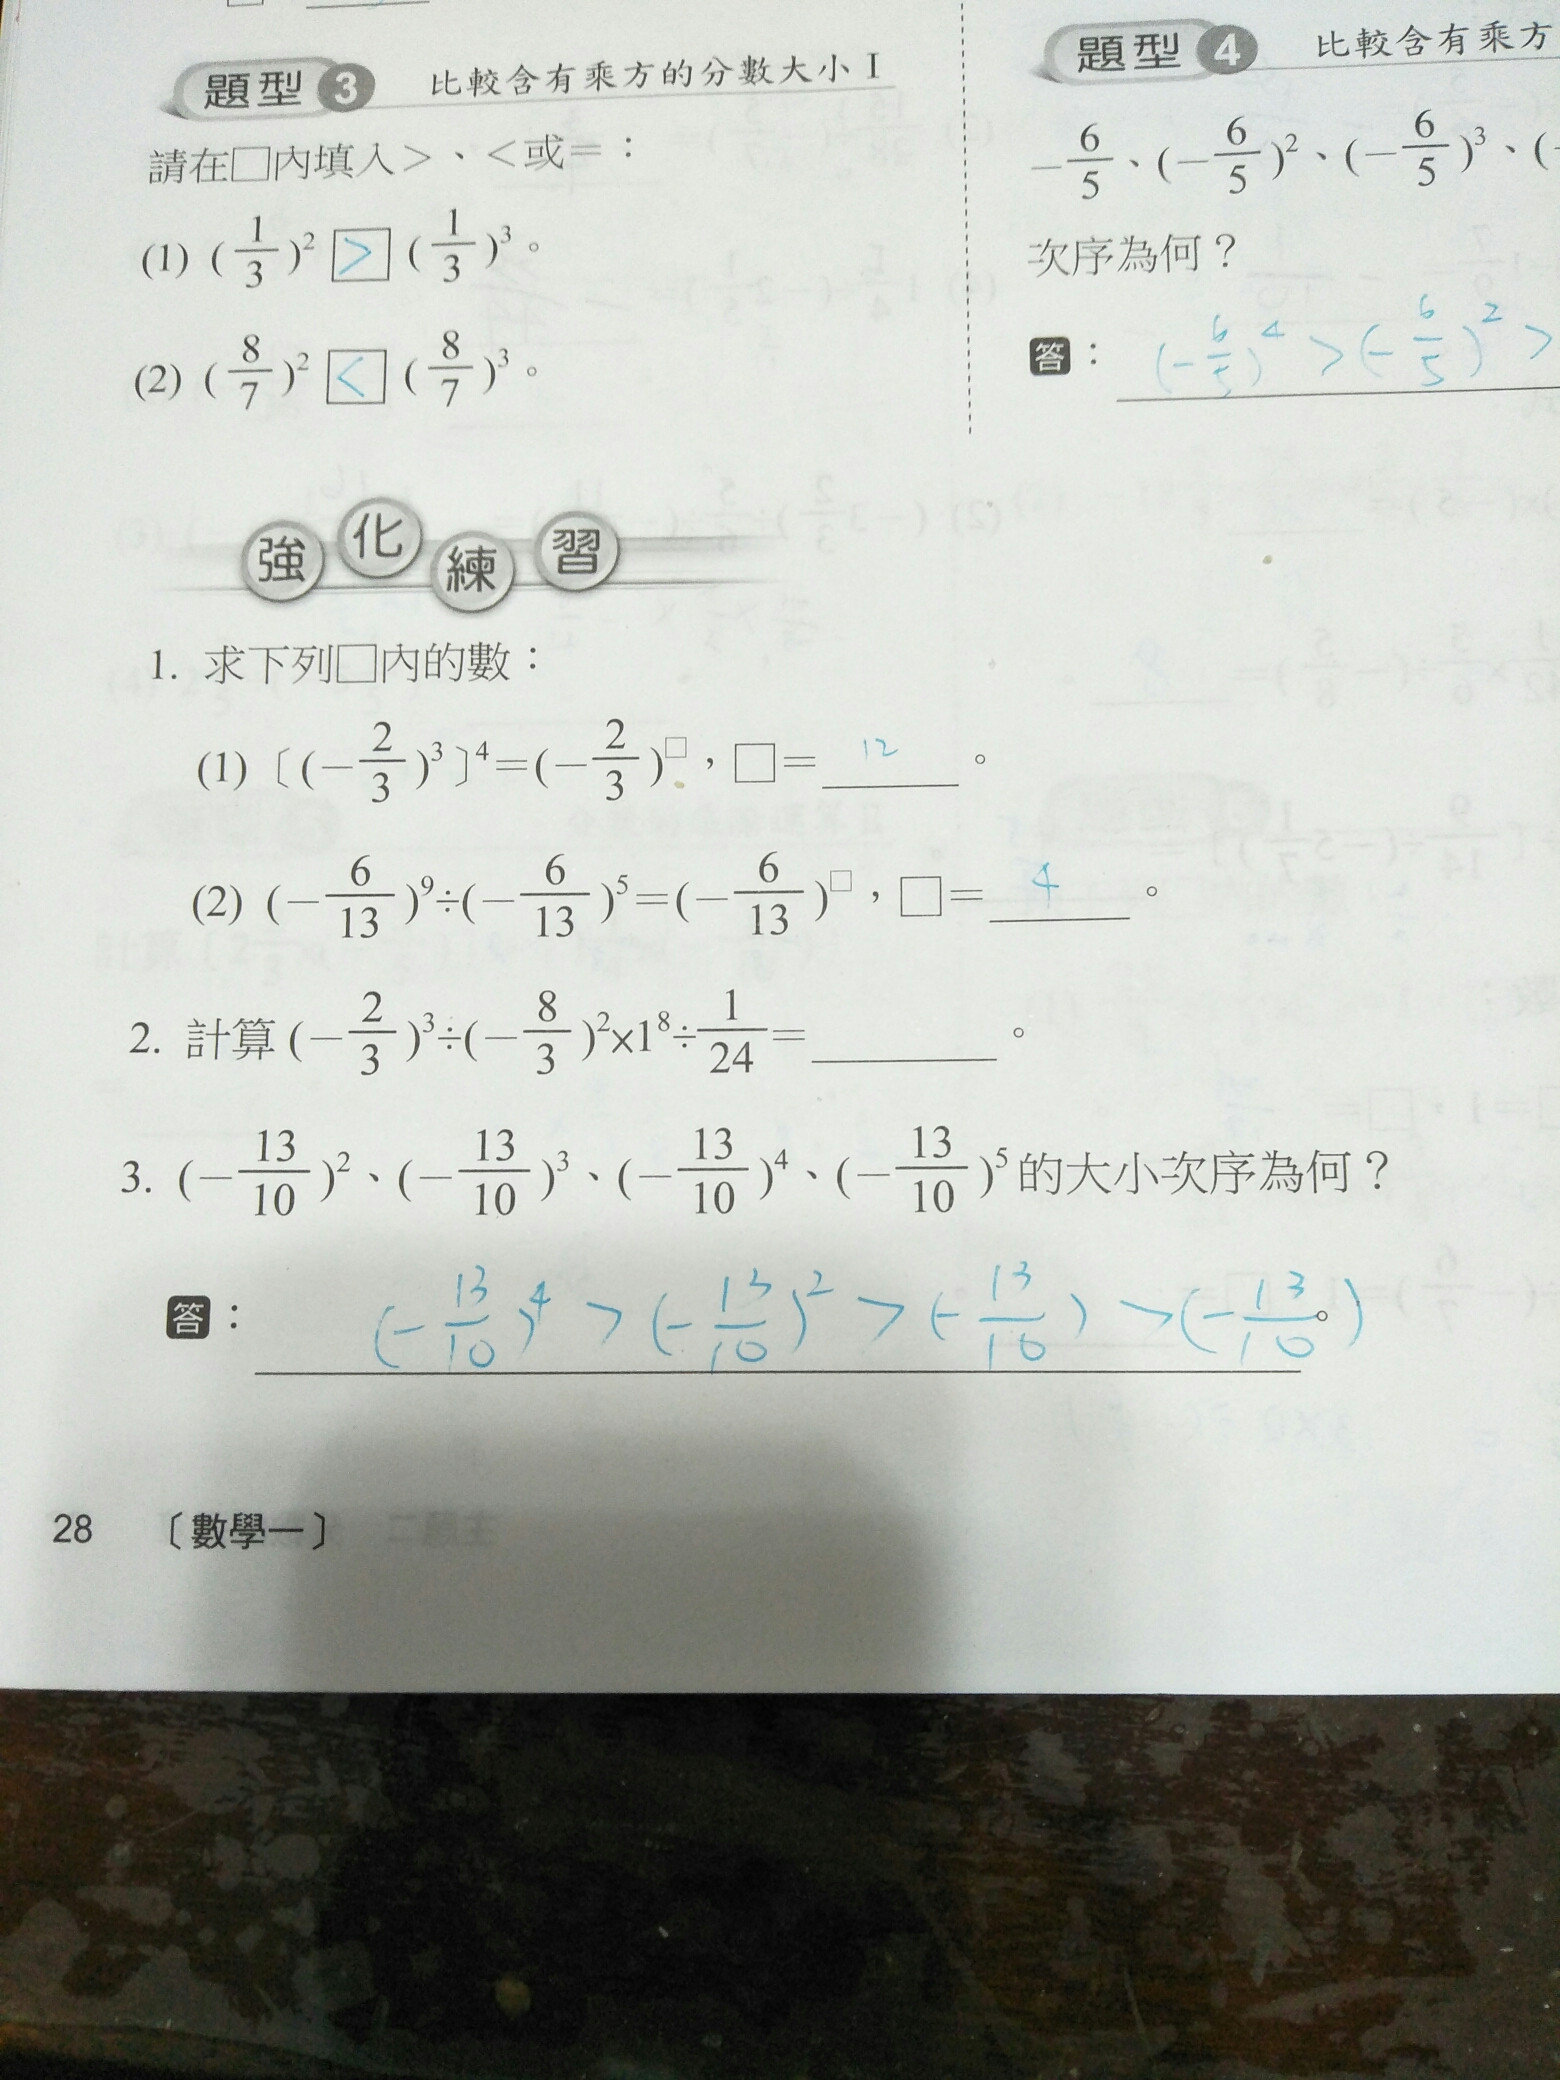 題型3 比較含有乘方的分數大小 I
請在□內填入>、<或=：
(1) (1/3)² > (1/3)³。
(2) (8/7)² < (8/7)³。
題型4 比較含有乘方
-6/5、(-6/5)²、(-6/5)³、(-
次序為何？
答：(-6/5)⁴>(-6/5)²>
強化練習
1. 求下列□內的數：
(1)〔(-2/3)³〕⁴=(-2/3)^□，□=12。
(2) (-6/13)⁹÷(-6/13)⁵=(-6/13)^□，□=4。
2. 計算(-2/3)³÷(-8/3)²×1⁸÷1/24=______。
3. (-13/10)²、(-13/10)³、(-13/10)⁴、(-13/10)⁵的大小次序為何？
答：(-13/10)⁴>(-13/10)²>(-13/10)>(-13/10)。
28 〔數學一〕